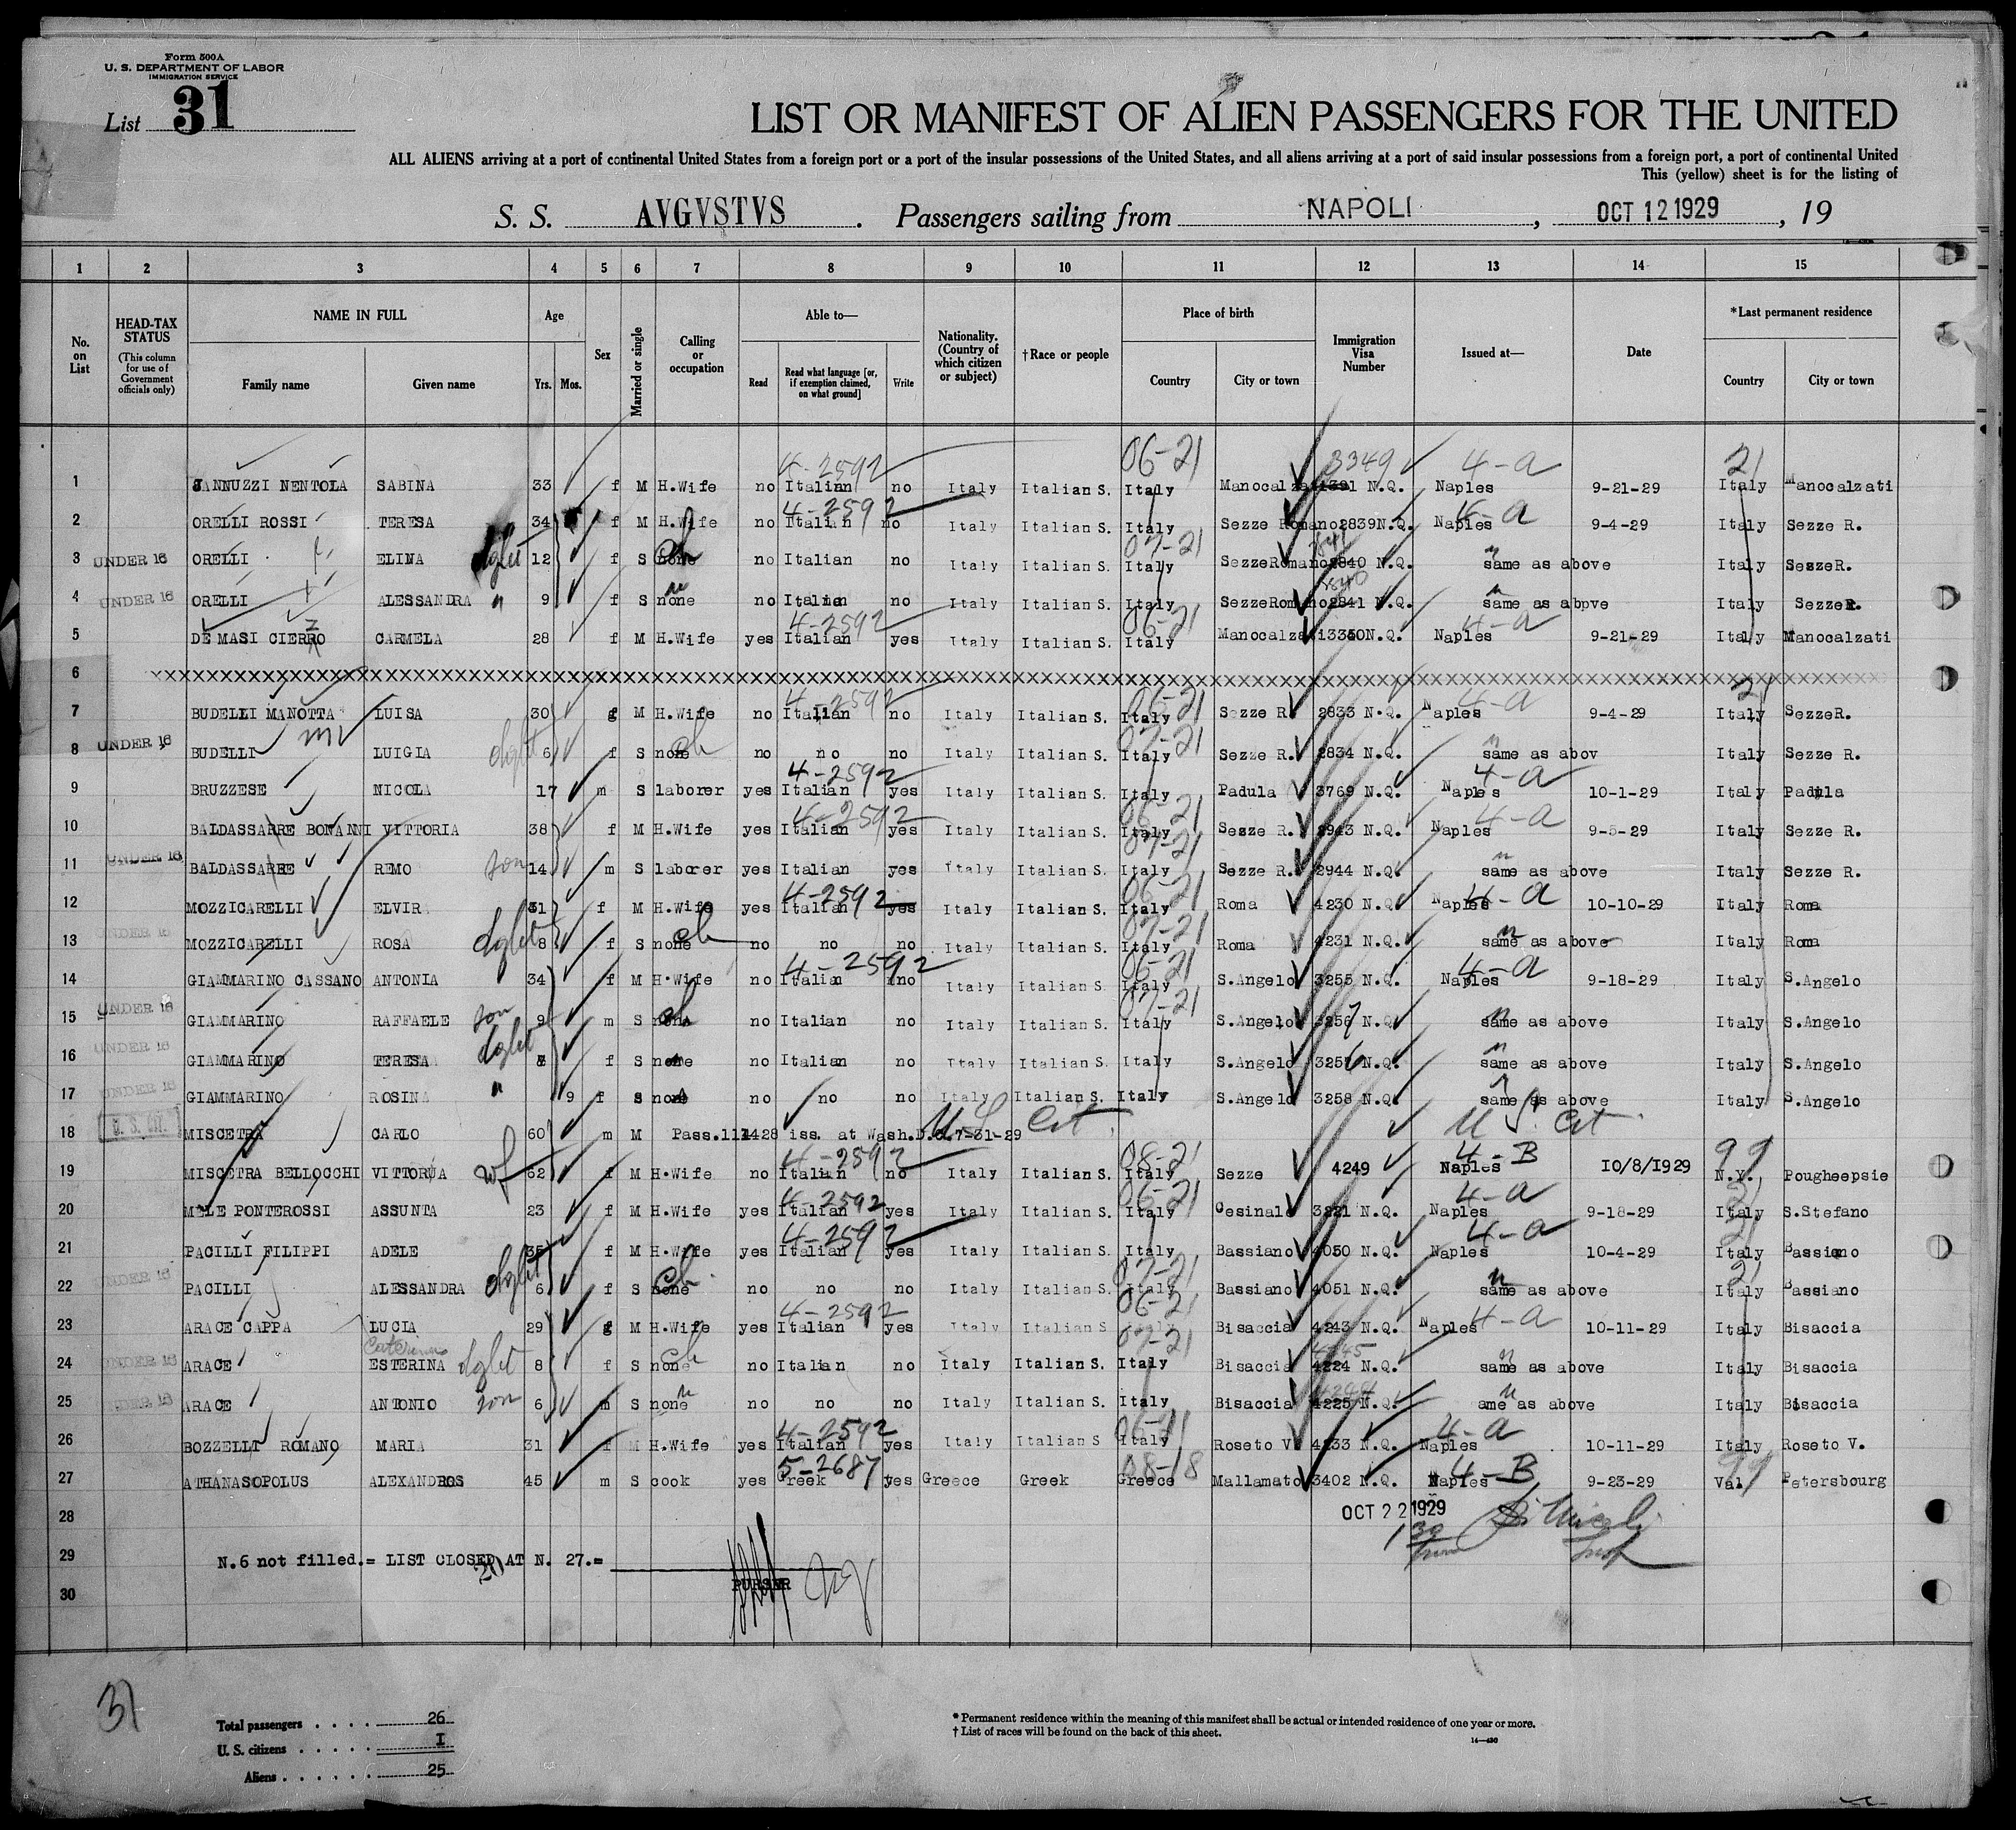 Form 500A
U. S. DEPARTMENT OF LABOR
IMMIGRATION SERVICE
List 31
LIST OR MANIFEST OF ALIEN PASSENGERS FOR THE UNITED
ALL ALIENS arriving at a port of continental United States from a foreign port or a port of the insular possessions of the United States, and all aliens arriving at a port of said insular possessions from a foreign port, a port of continental United
This (yellow) sheet is for the listing of
S. S. AVGVSTVS . Passengers sailing from NAPOLI , OCT 12 1929 , 19
1 2 3 4 5 6 7 8 9 10 11 12 13 14 15
No. on List
HEAD-TAX STATUS (This column for use of Government officials only)
NAME IN FULL
Family name Given name
Age
Yrs. Mos.
Sex
Married or single
Calling or occupation
Able to—
Read
Read what language [or, if exemption claimed, on what ground]
Write
Nationality. (Country of which citizen or subject)
†Race or people
Place of birth
Country City or town
Immigration Visa Number
Issued at—
Date
*Last permanent residence
Country City or town
06-21 3349 4-a 21
4-2592
1 JANNUZZI NENTOLA SABINA 33 f M H.Wife no Italian no Italy Italian S. Italy Manocalzati N.Q. Naples 9-21-29 Italy Manocalzati
4-2592 4-a
2 ORELLI ROSSI TERESA 34 f M H.Wife no Italian no Italy Italian S. Italy Sezze Romano 2839 N.Q. Naples 9-4-29 Italy Sezze R.
07-21 841
3 UNDER 16 ORELLI ELINA dght 12 f S none ch no Italian no Italy Italian S. Italy SezzeRomano 2840 N.Q. same as above Italy SezzeR.
840
4 UNDER 16 ORELLI ALESSANDRA " 9 f S none no Italian no Italy Italian S. Italy SezzeRomano 2841 N.Q. same as above Italy SezzeR.
4-2592 06-21 4-a
5 DE MASI CIERRO CARMELA 28 f M H.Wife yes Italian yes Italy Italian S. Italy Manocalzati N.Q. Naples 9-21-29 Italy Manocalzati
6 xxxxxxxxxxxxxxxxxxxxxxxxxxxxxxxxxxxxxxxxxxxxxxxxxxxxxxxxxxxxxxxxxxxxxxxxxxxxxxxxxxxxxxxxxxxxxxxxxxxx
4-2592 06-21 4-a 21
7 BUDELLI MANOTTA LUISA 30 g M H.Wife no Italian no Italy Italian S. Italy Sezze R. 2833 N.Q. Naples 9-4-29 Italy SezzeR.
07-21
8 UNDER 16 BUDELLI LUIGIA dght 6 f S none ch no no no Italy Italian S. Italy Sezze R. 2834 N.Q. same as abov Italy Sezze R.
4-2592 4-a
9 BRUZZESE NICOLA 17 m S laborer yes Italian yes Italy Italian S. Italy Padula 3769 N.Q. Naples 10-1-29 Italy Padula
4-2592 06-21 4-a
10 BALDASSARRE BONANNI VITTORIA 38 f M H.Wife yes Italian yes Italy Italian S. Italy Sezze R. 2943 N.Q. Naples 9-5-29 Italy Sezze R.
07-21
11 UNDER 16 BALDASSARRE REMO son 14 m S laborer yes Italian yes Italy Italian S. Italy Sezze R. 2944 N.Q. same as above Italy Sezze R.
4-2592 06-21 4-a
12 MOZZICARELLI ELVIR 31 f M H.Wife yes Italian yes Italy Italian S. Italy Roma 4230 N.Q. Naples 10-10-29 Italy Roma
07-21
13 UNDER 16 MOZZICARELLI ROSA dght 8 f S none ch no no no Italy Italian S. Italy Roma 4231 N.Q. same as above Italy Roma
4-2592 06-21 4-a
14 GIAMMARINO CASSANO ANTONIA 34 f M H.Wife no Italian no Italy Italian S. Italy S.Angelo 3255 N.Q. Naples 9-18-29 Italy S.Angelo
07-21
15 UNDER 16 GIAMMARINO RAFFAELE son 9 m S none ch no Italian no Italy Italian S. Italy S.Angelo 3257 N.Q. same as above Italy S.Angelo
16 UNDER 16 GIAMMARINO TERESA dght f S none no Italian no Italy Italian S. Italy S.Angelo 3256 N.Q. same as above Italy S.Angelo
17 UNDER 16 GIAMMARINO ROSINA " 9 f S none no no no Italy Italian S. Italy S.Angelo 3258 N.Q. same as above Italy S.Angelo
18 U. S. CIT. MISCETRA CARLO 60 m M Pass. iss. at Wash.D.C.7-31-29 U S Cit. U S. Cit
4-2592 08-21 4-B 99
19 MISCETRA BELLOCCHI VITTORUA wf 62 f M H.Wife no Italian no Italy Italian S. Italy Sezze 4249 Naples 10/8/1929 N.Y. Pougheepsie
4-2592 06-21 4-a 21
20 MELE PONTEROSSI ASSUNTA 23 f M H.Wife yes Italian yes Italy Italian S. Italy Cesinale 3221 N.Q. Naples 9-18-29 Italy S.Stefano
4-2592 4-a 21
21 PACILLI FILIPPI ADELE 35 f M H.Wife yes Italian yes Italy Italian S. Italy Bassiano 4050 N.Q. Naples 10-4-29 Italy Bassiano
07-21 21
22 UNDER 16 PACILLI ALESSANDRA dght 6 f S none ch no no no Italy Italian S. Italy Bassiano 4051 N.Q. same as above Italy Bassiano
4-2592 06-21 4-a
23 ARACE CAPPA LUCIA 29 g M H.Wife yes Italian yes Italy Italian S Bisaccia 4243 N.Q. Naples 10-11-29 Italy Bisaccia
Caterina 07-21
24 UNDER 16 ARACE ESTERINA dght 8 f S none ch no Italian no Italy Italian S. Italy Bisaccia 4224 N.Q. same as above Italy Bisaccia
25 UNDER 16 ARACE ANTONIO son 6 m S none no no no Italy Italian S. Italy Bisaccia 4225 N.Q. ame as above Italy Bisaccia
4-2592 06-21 4-a
26 BOZZELLI ROMANO MARIA 31 f M H.Wife yes Italian yes Italy Italian S Italy Roseto V. 4233 N.Q. Naples 10-11-29 Italy Roseto V.
5-2687 08-18 4-B 99
27 ATHANASOPOLUS ALEXANDROS 45 m S cook yes Greek yes Greece Greek Greece Mallamato 3402 N.Q. Naples 9-23-29 Val Petersbourg
28 OCT 22 1929
29 N.6 not filled.= LIST CLOSED AT N. 27.=
PURSER
30
31
Total passengers . . . . 26
U. S. citizens . . . . . I
Aliens . . . . . . 25
* Permanent residence within the meaning of this manifest shall be actual or intended residence of one year or more.
† List of races will be found on the back of this sheet.
14—430